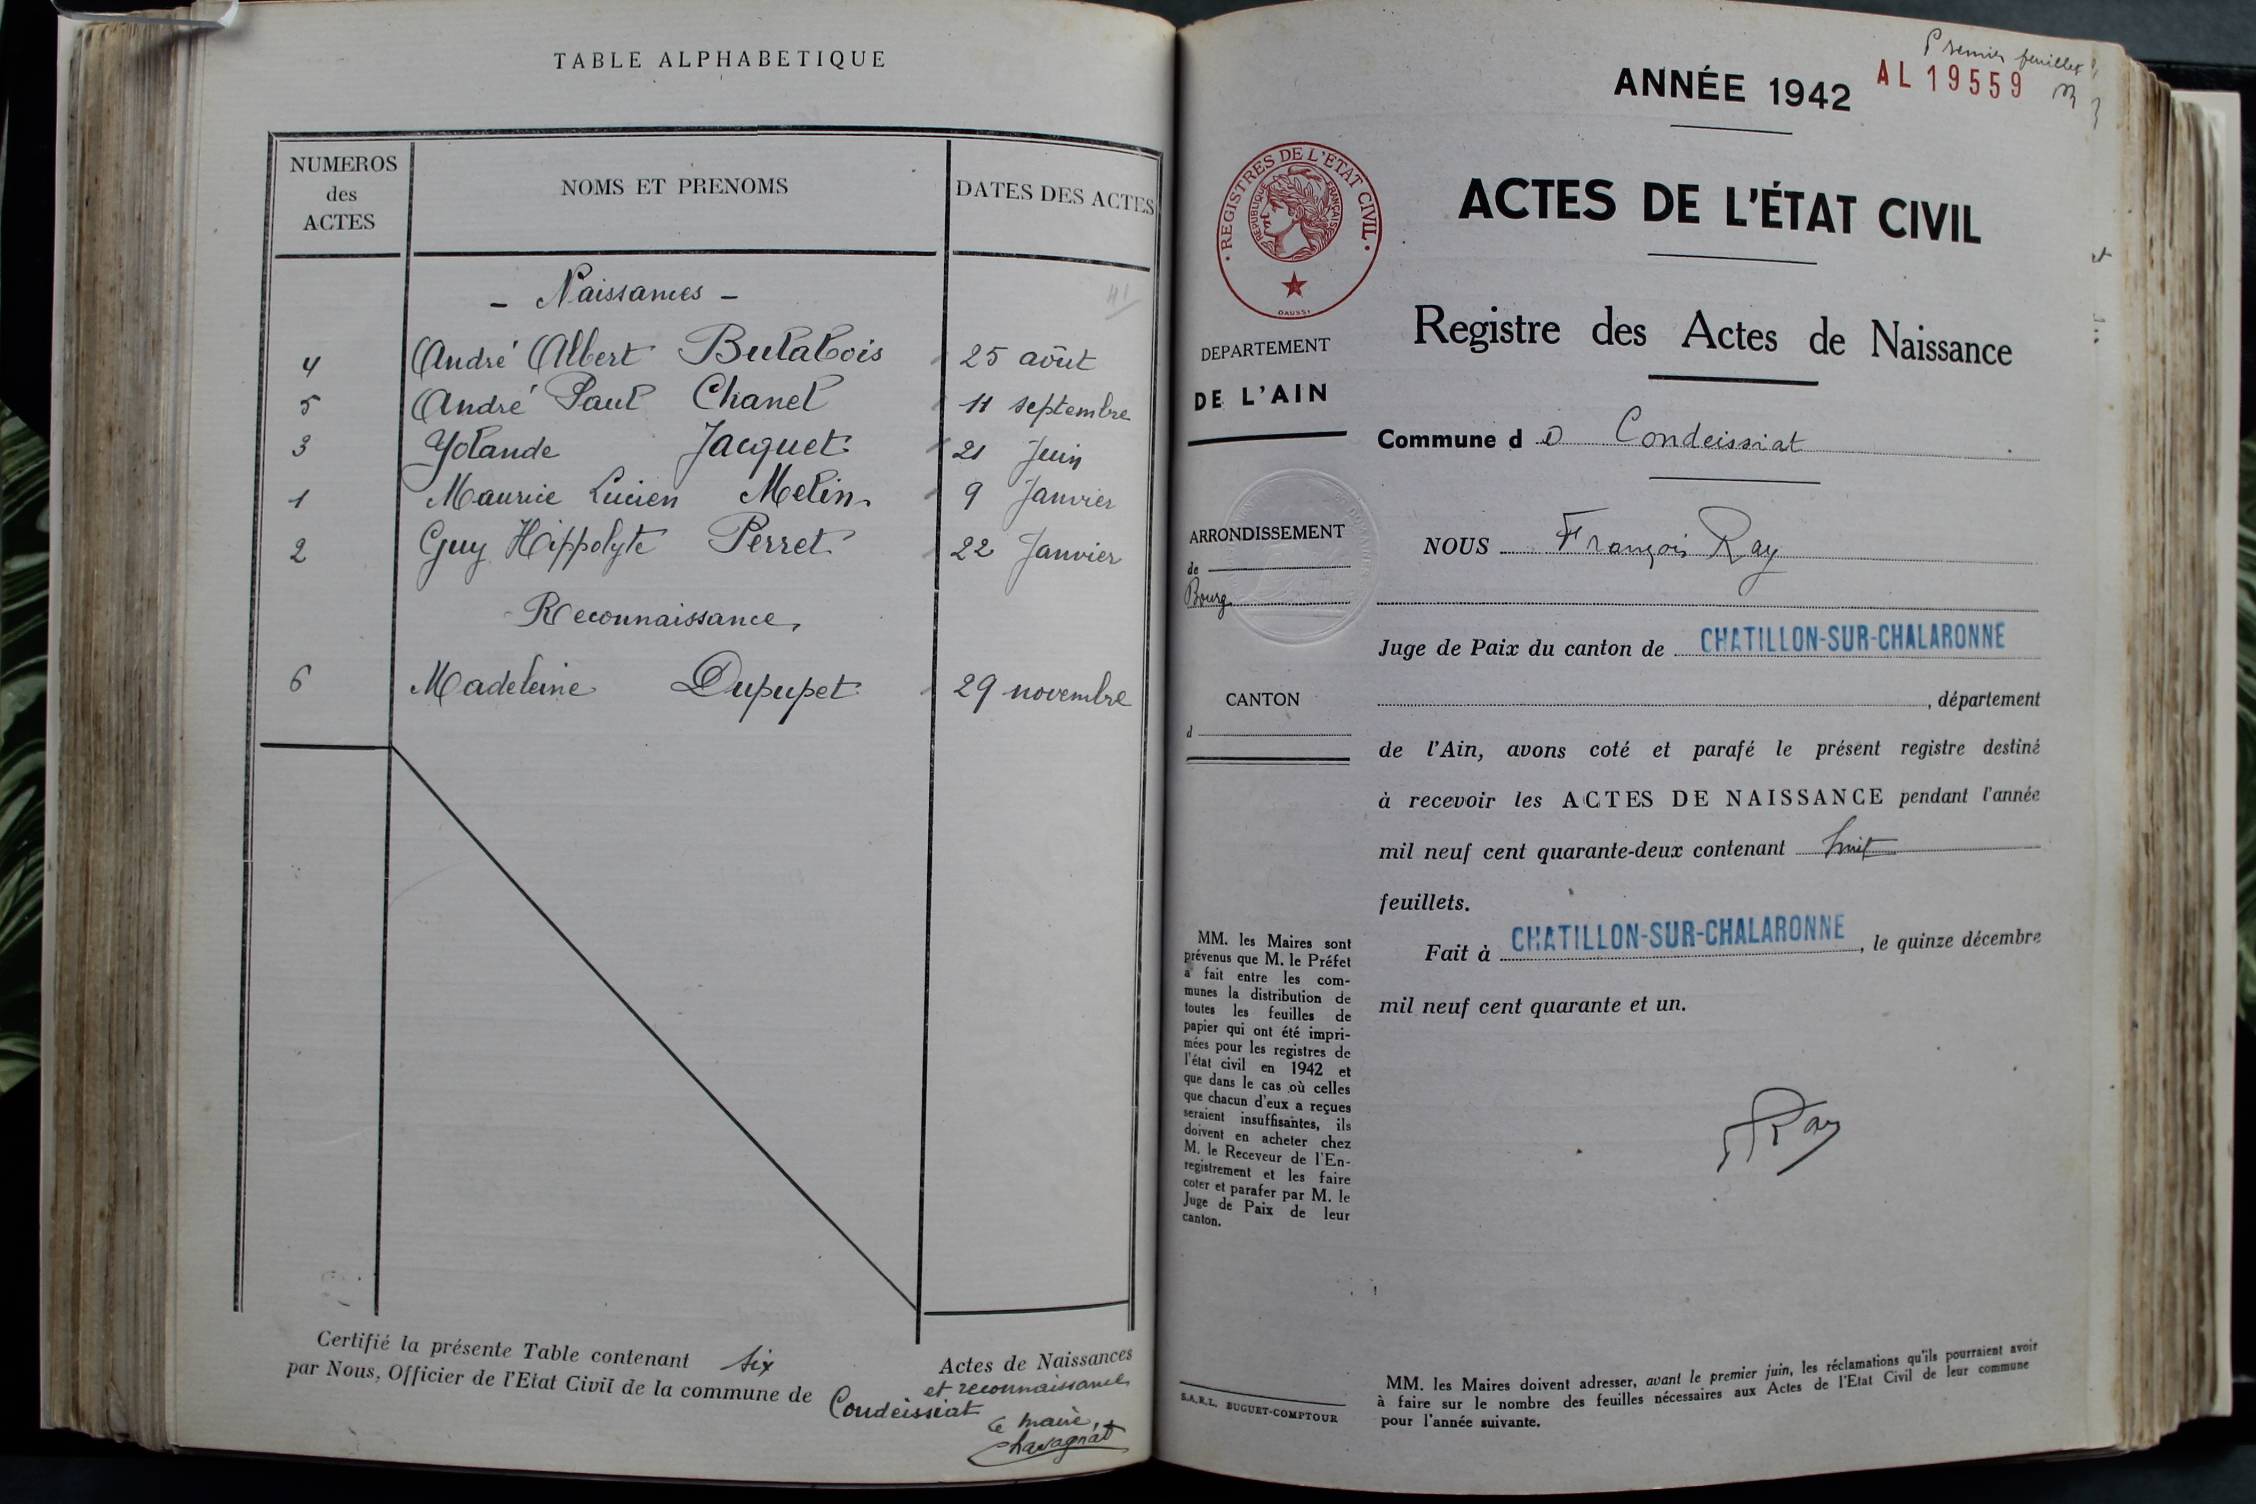 TABLE ALPHABETIQUE
NUMEROS
des
ACTES
NOMS ET PRENOMS
DATES DES ACTES
- Naissances -
41
4 André Albert Butabois 25 août
5 André Paul Chanel 11 septembre
3 Yolande Jacquet 21 Juin
1 Maurice Lucien Melin 9 Janvier
2 Guy Hippolyte Perret 22 Janvier
Reconnaissance
6 Madeleine Dupupet 29 novembre
Certifié la présente Table contenant six Actes de Naissances
et reconnaissances
par Nous, Officier de l'Etat Civil de la commune de Condeissiat
Le maire,
Chavagnat
Premier feuillet
ANNÉE 1942
AL 19559
REGISTRES DE L'ETAT CIVIL
REPUBLIQUE FRANÇAISE
DAUSSY
ACTES DE L'ÉTAT CIVIL
Registre des Actes de Naissance
DEPARTEMENT
DE L'AIN
ARRONDISSEMENT
de
Bourg
CANTON
d
Commune d e Condeissiat
NOUS François Ray
Juge de Paix du canton de CHATILLON-SUR-CHALARONNE
, département
de l'Ain, avons coté et parafé le présent registre destiné
à recevoir les ACTES DE NAISSANCE pendant l'année
mil neuf cent quarante-deux contenant huit
feuillets.
Fait à CHATILLON-SUR-CHALARONNE, le quinze décembre
mil neuf cent quarante et un.
FRay
MM. les Maires sont
prévenus que M. le Préfet
a fait entre les com-
munes la distribution de
toutes les feuilles de
papier qui ont été impri-
mées pour les registres de
l'état civil en 1942 et
que dans le cas où celles
que chacun d'eux a reçues
seraient insuffisantes, ils
doivent en acheter chez
M. le Receveur de l'En-
registrement et les faire
coter et parafer par M. le
Juge de Paix de leur
canton.
S.A.R.L. BUGUET-COMPTOUR
MM. les Maires doivent adresser, avant le premier juin, les réclamations qu'ils pourraient avoir
à faire sur le nombre des feuilles nécessaires aux Actes de l'Etat Civil de leur commune
pour l'année suivante.